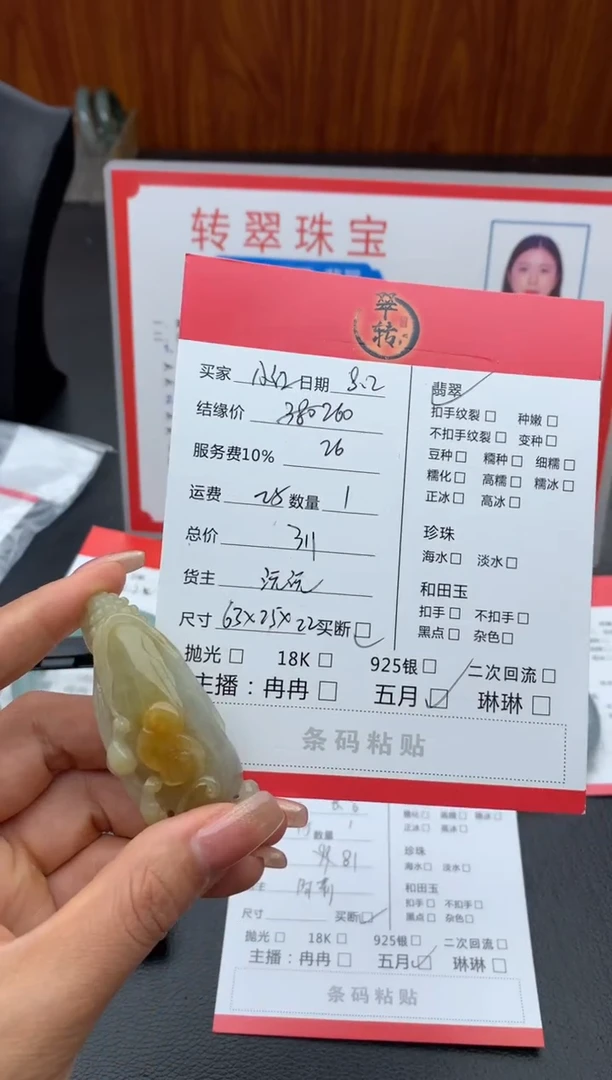 转翠珠宝
翠
转
买家 小红 日期 8.2
结缘价 380260
服务费10% 26
运费 25 数量 1
总价 311
货主 沅沅
尺寸 63×25×22 买断
抛光 18K 925银 二次回流
主播：冉冉 五月 琳琳
翡翠
扣手纹裂 种嫩
不扣手纹裂 变种
豆种 糯种 细糯
糯化 高糯 糯冰
正冰 高冰
珍珠
海水 淡水
和田玉
扣手 不扣手
黑点 杂色
条码粘贴
数量 1
81
尺寸 买断
正冰 高冰
珍珠
海水 淡水
和田玉
扣手 不扣手
黑点 杂色
抛光 18K 925银 二次回流
主播：冉冉 五月 琳琳
条码粘贴